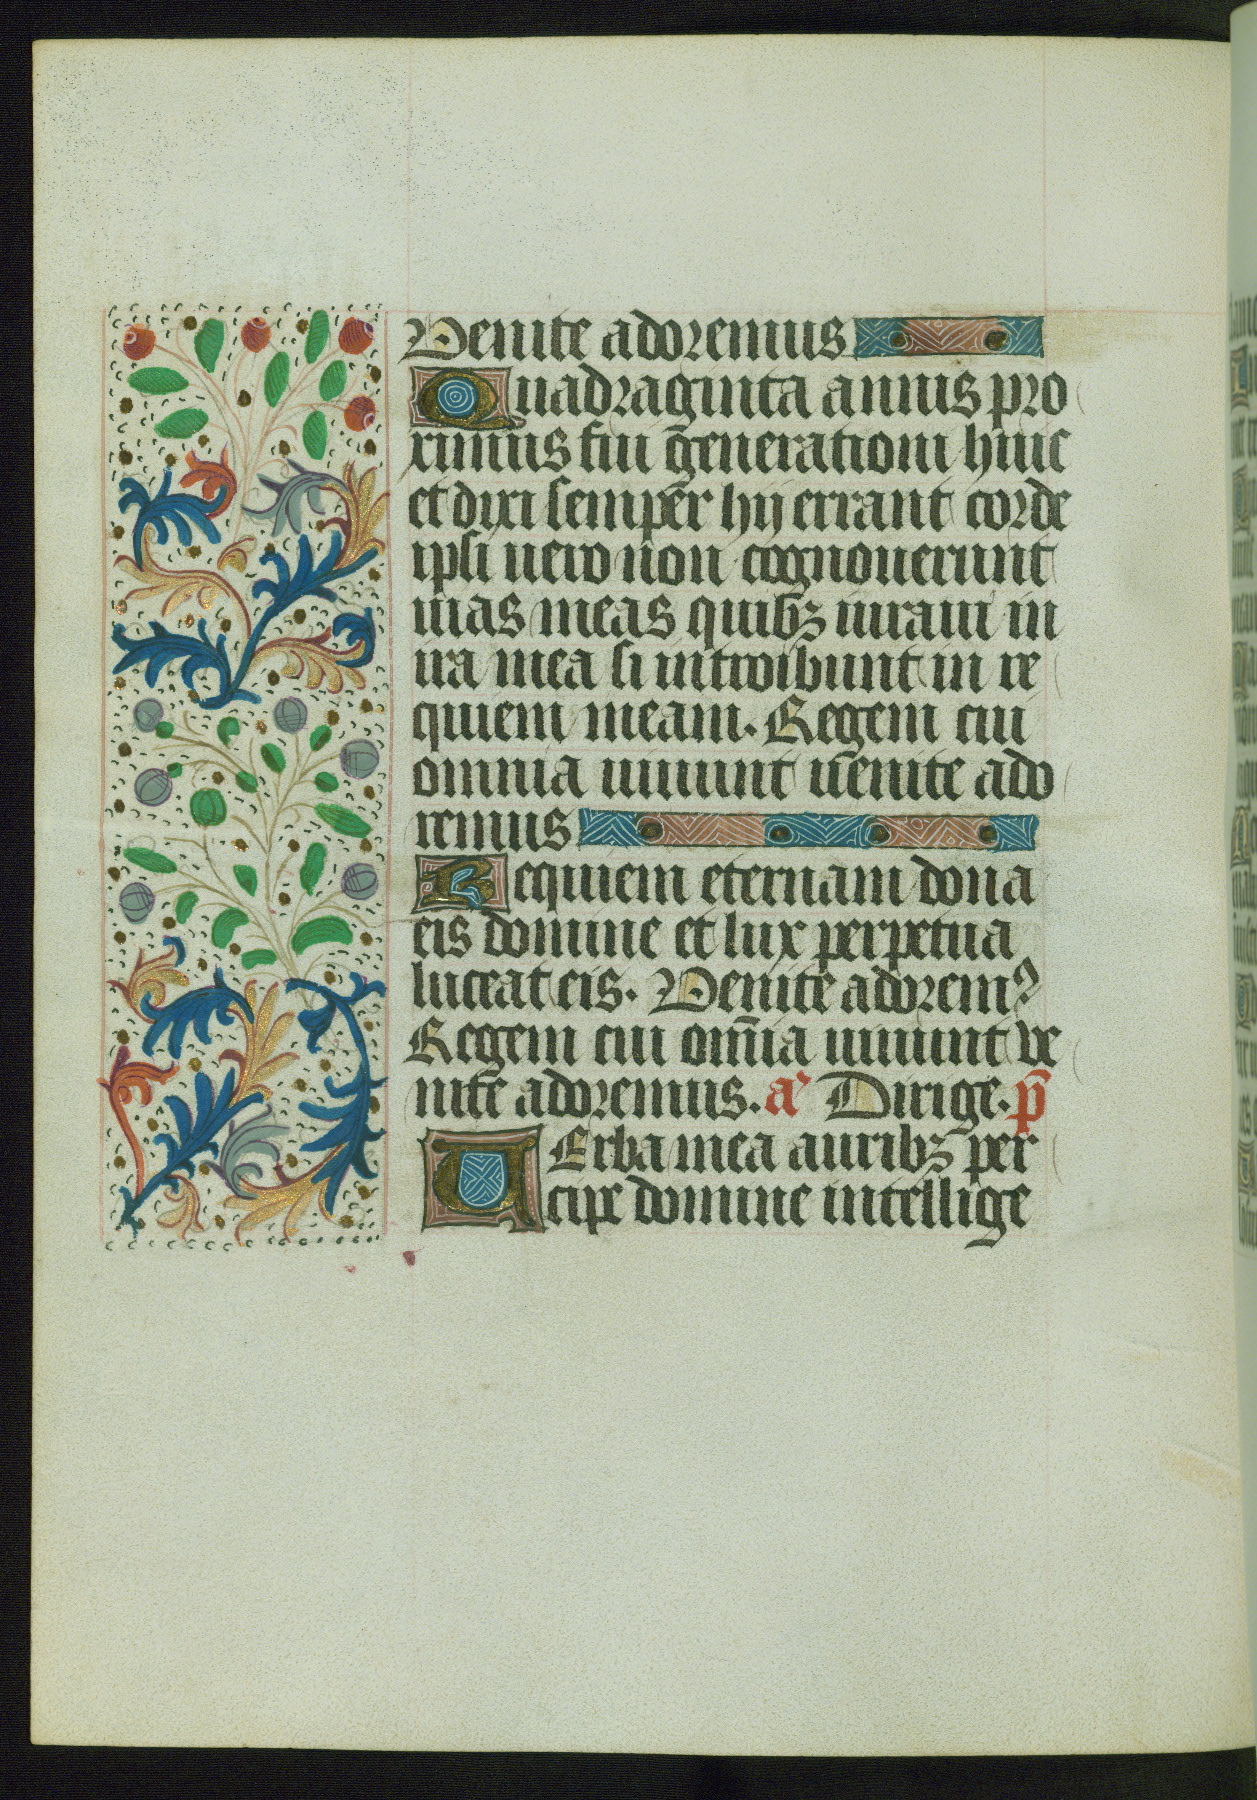 Venite adoremus
Quadraginta annis pro
ximus fui g̅enerationi huic
et dixi semper̅ hij errant corde
ipsi uero non cognouerunt
uias meas quibꝫ iuraui in
ira mea si introibunt in re
quiem meam. Regem cui
omnia uiuunt u̅enite ado
remus
Requiem eternam dona
eis domine et lux perpetua
luceat eis. Venite adoremꝰ
Regem cui om̅ia uiuunt ve
nite adoremus. a̾ Dirige. p̅
VErba mea auribꝫ per
cipe domine intellige